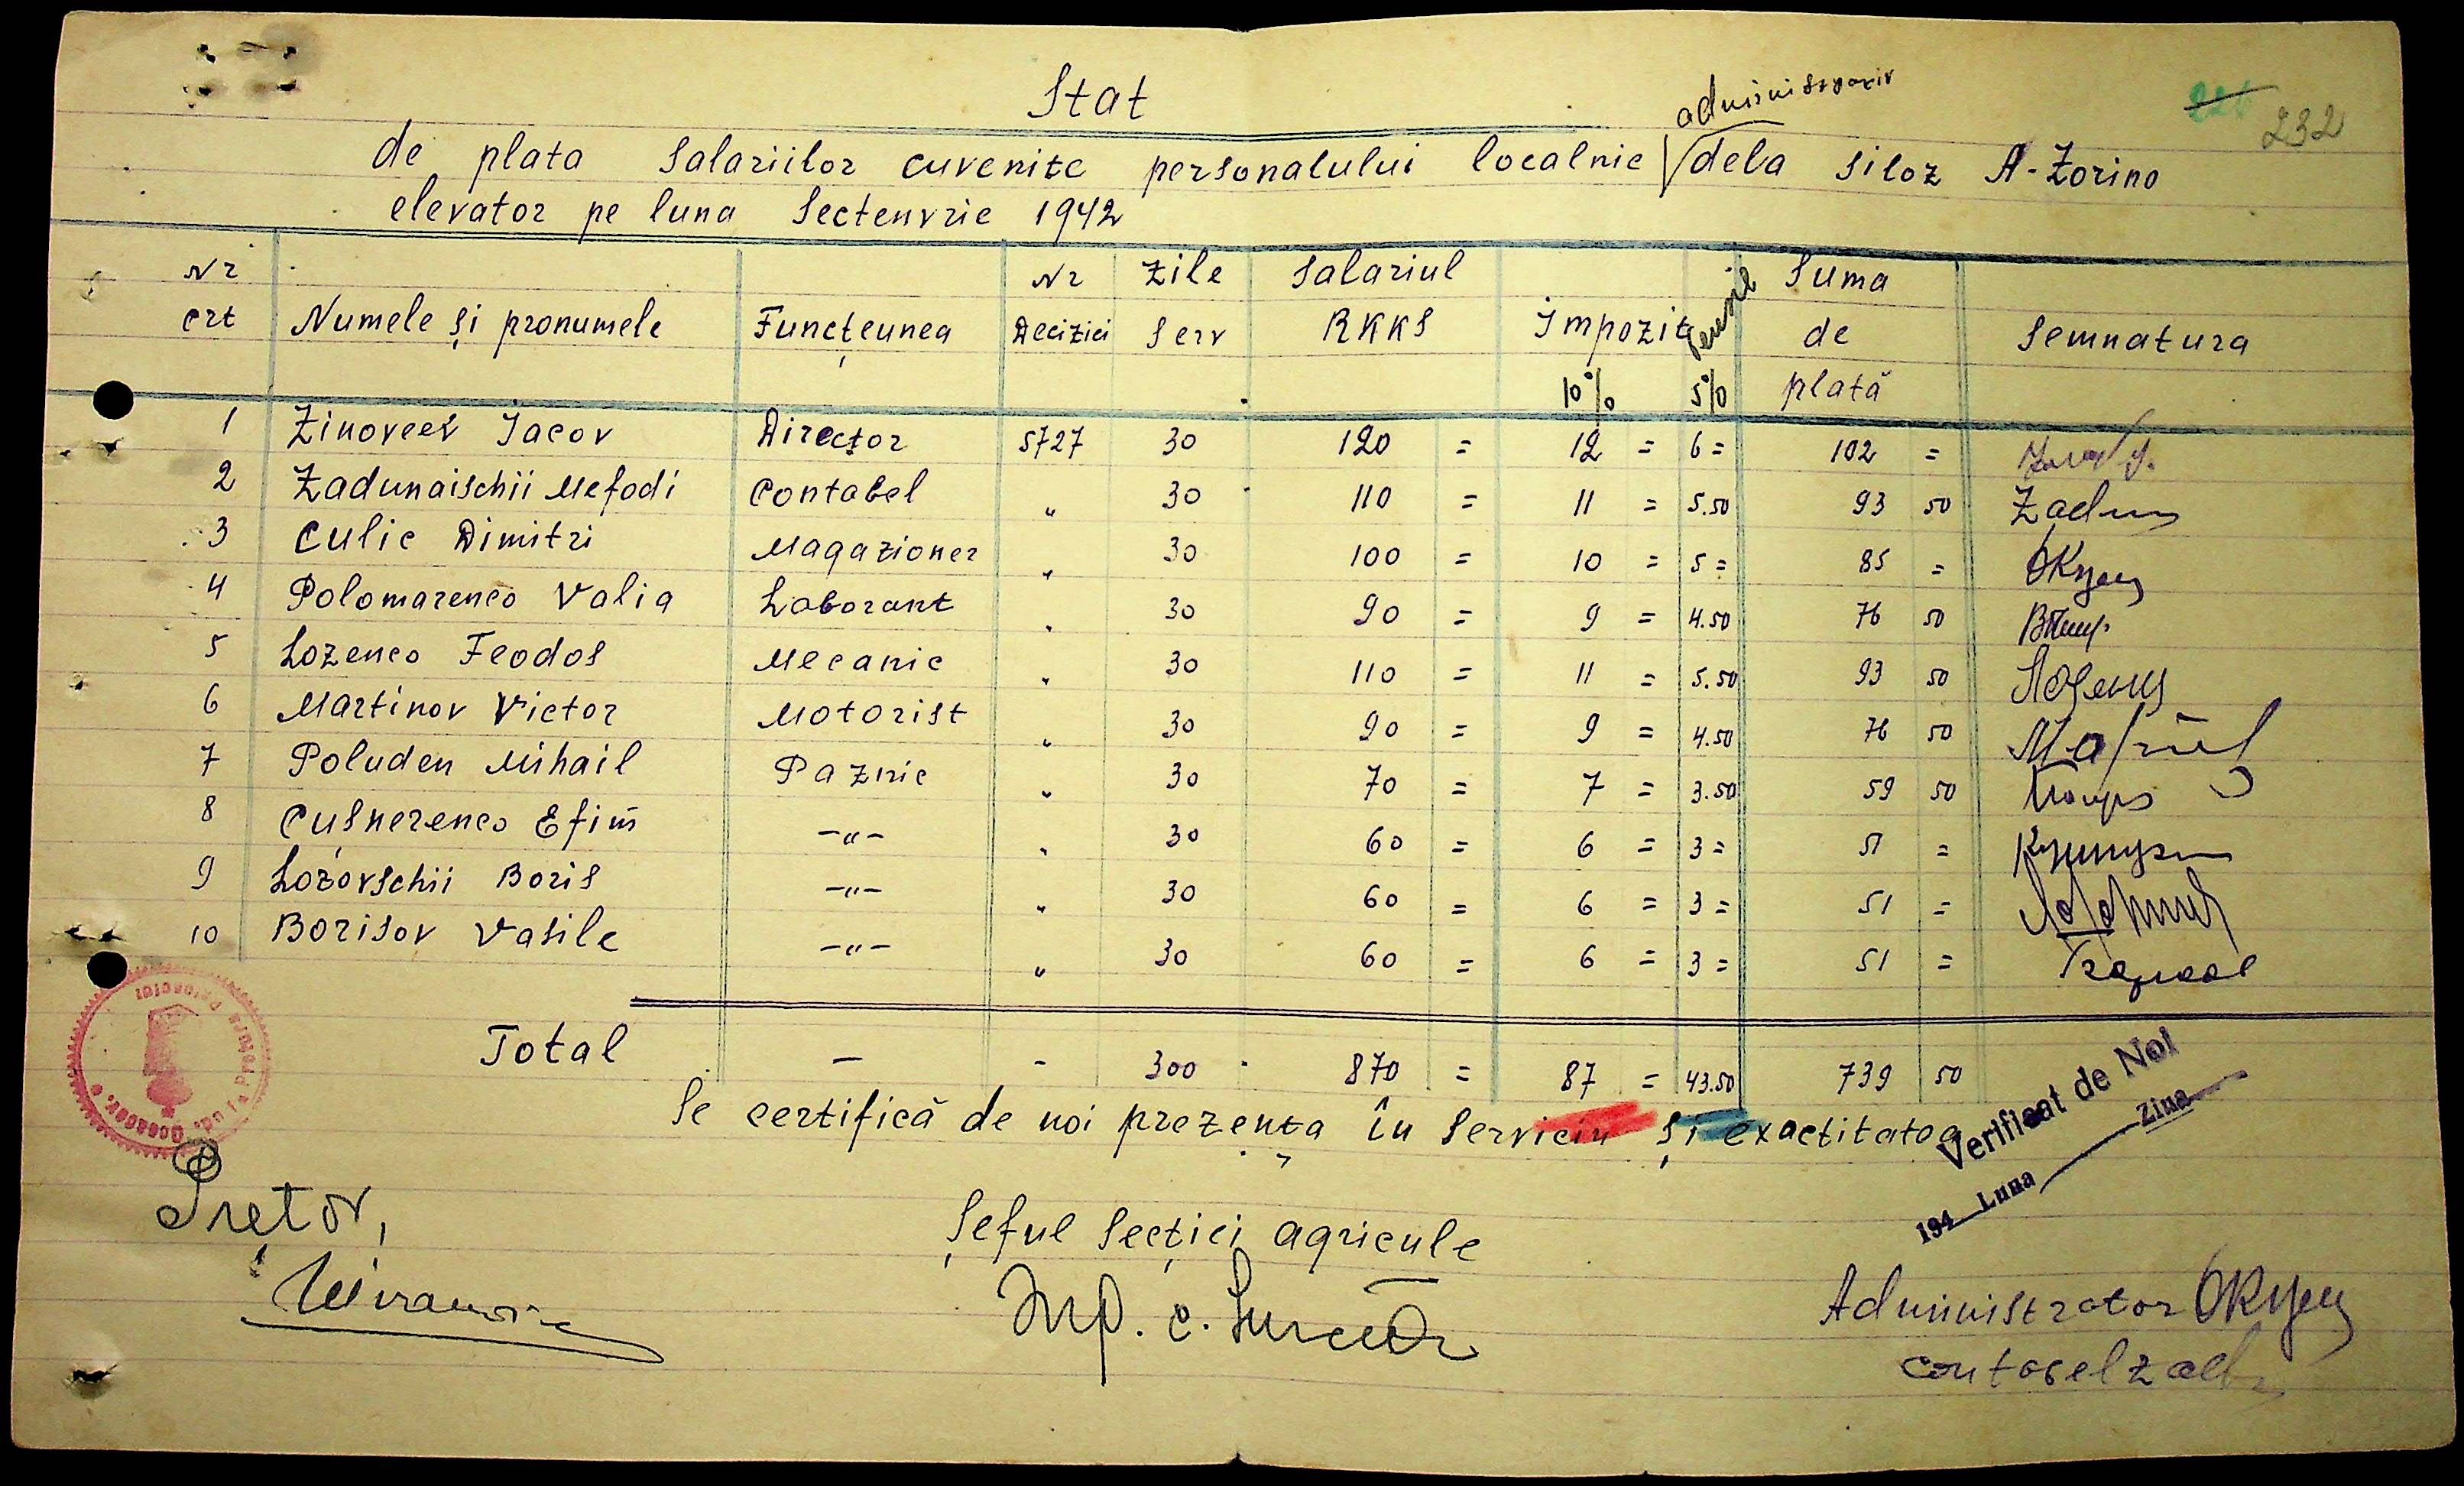 232
administrativ
Stat
de plata salariilor cuvenite personalului localnic dela siloz A-Zorino
elevator pe luna Sectenvrie 1942
Nr crt Numele și pronumele Funcțeunea Nr Deciziei Zile Serv Salariul RKKS Impozit 10% Pensie 5% Suma de plată Semnatura
1 Zinoveev Jacov Director 5727 30 120 = 12 = 6 = 102 =
2 Zadunaischii Mefodi Contabel " 30 110 = 11 = 5.50 93 50 Zadun
3 Culic Dimitri Magazioner " 30 100 = 10 = 5 = 85 =
4 Polomarenco Valia Laborant " 30 90 = 9 = 4.50 76 50
5 Lozenco Feodos Mecanic " 30 110 = 11 = 5.50 93 50
6 Martinov Victor Motorist " 30 90 = 9 = 4.50 76 50
7 Poluden Mihail Paznic " 30 70 = 7 = 3.50 59 50
8 Cușnerenco Efim -"- " 30 60 = 6 = 3 = 51 =
9 Lozovschii Boris -"- " 30 60 = 6 = 3 = 51 =
10 Borisov Vasile -"- " 30 60 = 6 = 3 = 51 =
Total — - 300 870 = 87 = 43.50 739 50
Se certifică de noi prezența în serviciu și exactitatea
Verificat de Noi
194 Luna Ziua
Pretor,
Șeful Secției agricule
Administrator
Contabel